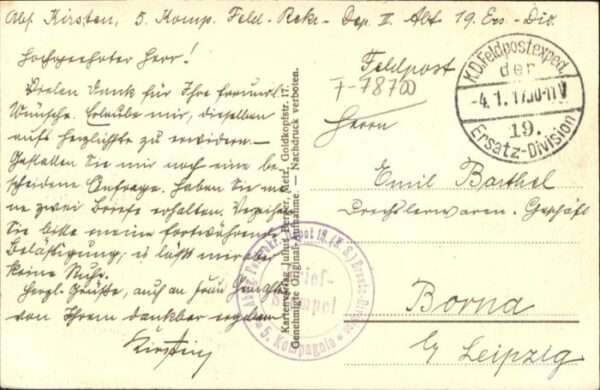 Abs. Kirsten, 5. Komp. Feld-Rekr.-Dep. II Abt 19. Ers-Div.
Hochgeehrter Herr!
Vielen Dank für Ihre freundl.
Wünsche. Erlaube mir, dieselben
aufs herzlichste zu erwidern.—
Gestatten Sie mir noch eine be-
scheidene Anfrage. Haben Sie mei-
ne zwei Briefe erhalten. Verzeihen
Sie bitte meine fortwährende
Belästigung; es läßt mir aber
keine Ruhe.
Herzl. Grüße, auch an Frau Gemahlin
von Ihrem dankbar ergeben
Kirsten
Kartenverlag Julius Herper, Metz, Goldkopfstr. 17.
Genehmigte Original-Aufnahme. — Nachdruck verboten.
5. Kompagnie
Brief-
stempel
Feldpost
7-78700
K.D.Feldpostexped.
der
-4.1.17.10-11V
19.
Ersatz-Division
Herrn
Emil Barthel
Drechslerwaren-Geschäft
Borna
b/ Leipzig